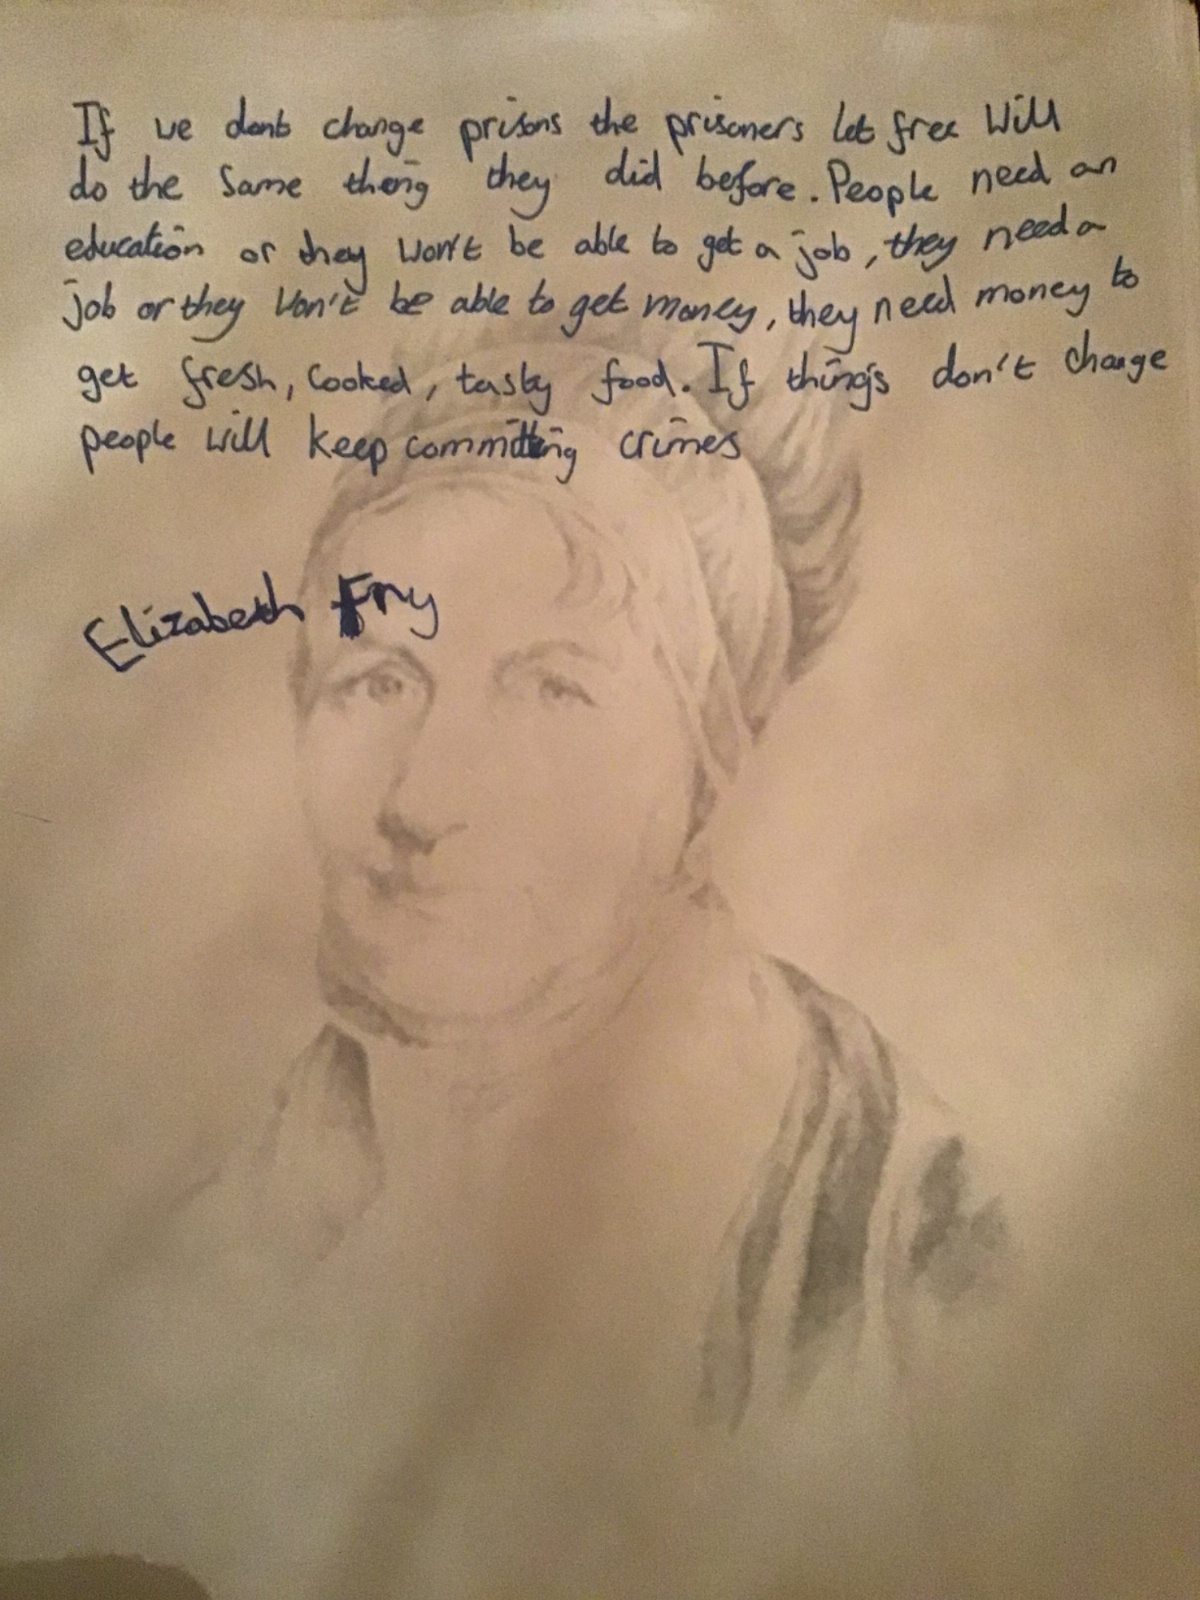 If we dont change prisons the prisoners let free will
do the same thing they did before. People need an
education or they won't be able to get a job, they need a
job or they won't be able to get money, they need money to
get fresh, cooked, tasty food. If things don't change
people will keep committing crimes
Elizabeth Fry